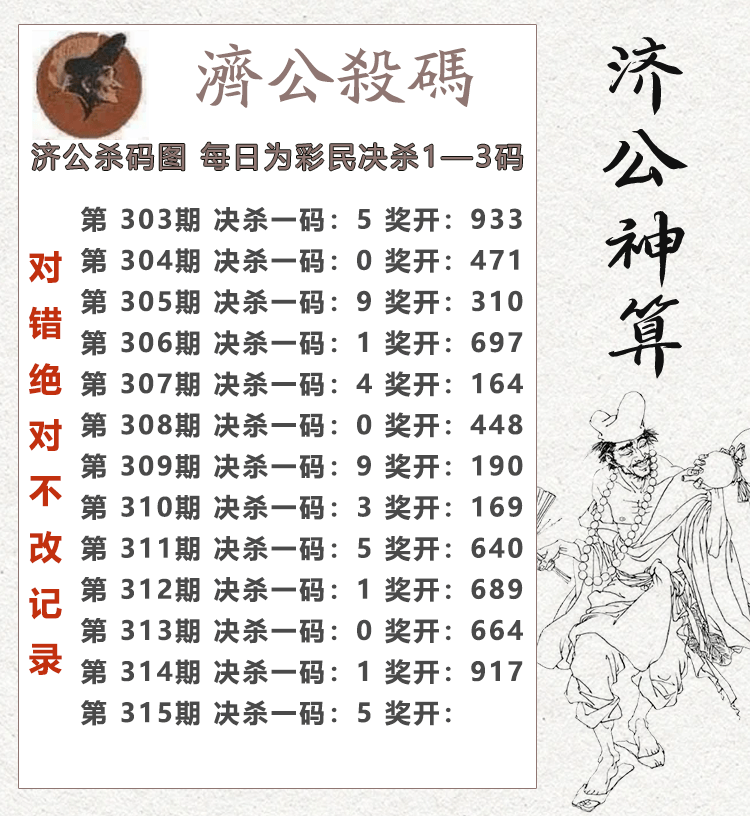 濟公殺碼
济公杀码图 每日为彩民决杀1—3码
第 303期 决杀一码：5 奖开：933
第 304期 决杀一码：0 奖开：471
第 305期 决杀一码：9 奖开：310
第 306期 决杀一码：1 奖开：697
第 307期 决杀一码：4 奖开：164
第 308期 决杀一码：0 奖开：448
第 309期 决杀一码：9 奖开：190
第 310期 决杀一码：3 奖开：169
第 311期 决杀一码：5 奖开：640
第 312期 决杀一码：1 奖开：689
第 313期 决杀一码：0 奖开：664
第 314期 决杀一码：1 奖开：917
第 315期 决杀一码：5 奖开：
对错绝对不改记录
济公神算